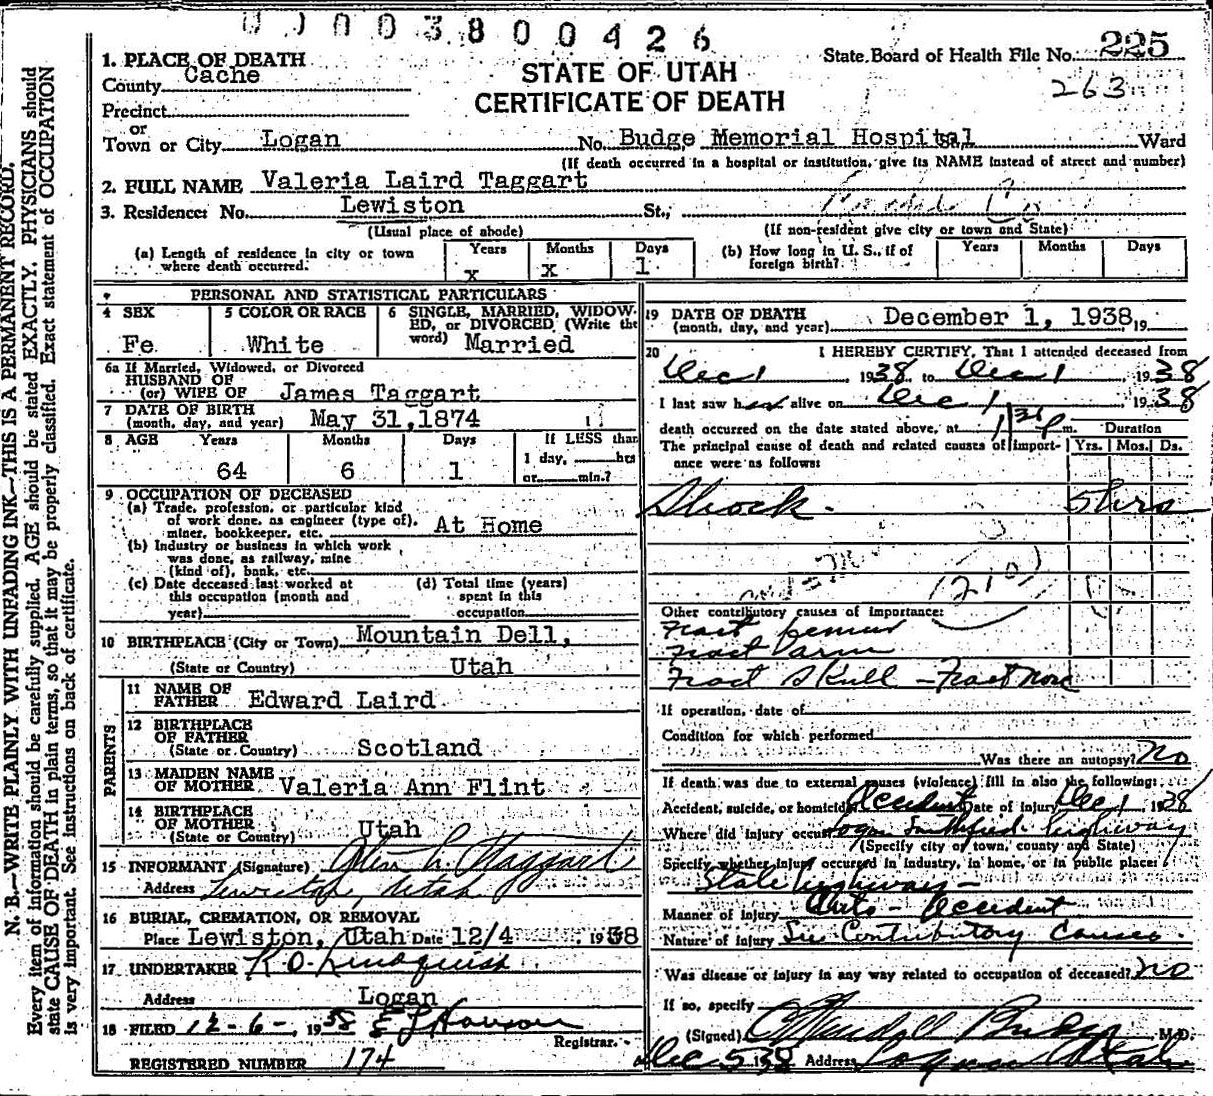 0003800426
State Board of Health File No. 225
263
STATE OF UTAH
CERTIFICATE OF DEATH
1. PLACE OF DEATH
County Cache
Precinct
or
Town or City Logan No. Budge Memorial Hospital Ward
(If death occurred in a hospital or institution, give its NAME instead of street and number)
2. FULL NAME Valeria Laird Taggart
3. Residence: No. Lewiston St.,
(Usual place of abode) (If non-resident give city or town and State)
(a) Length of residence in city or town where death occurred. Years x Months x Days 1
(b) How long in U. S., if of foreign birth? Years Months Days
PERSONAL AND STATISTICAL PARTICULARS
4 SEX Fe
5 COLOR OR RACE White
6 SINGLE, MARRIED, WIDOWED, or DIVORCED (Write the word) Married
6a If Married, Widowed, or Divorced
HUSBAND OF
(or) WIFE OF James Taggart
7 DATE OF BIRTH
(month, day, and year) May 31, 1874
8 AGE Years 64 Months 6 Days 1
If LESS than
1 day, hrs
or min.?
9 OCCUPATION OF DECEASED
(a) Trade, profession, or particular kind
of work done, as engineer (type of),
miner, bookkeeper, etc. At Home
(b) Industry or business in which work
was done, as railway, mine
(kind of), bank, etc.
(c) Date deceased last worked at
this occupation (month and
year)
(d) Total time (years)
spent in this
occupation
10 BIRTHPLACE (City or Town) Mountain Dell,
(State or Country) Utah
PARENTS
11 NAME OF
FATHER Edward Laird
12 BIRTHPLACE
OF FATHER
(State or Country) Scotland
13 MAIDEN NAME
OF MOTHER Valeria Ann Flint
14 BIRTHPLACE
OF MOTHER
(State or Country) Utah
15 INFORMANT (Signature)
Address Lewiston, Utah
16 BURIAL, CREMATION, OR REMOVAL
Place Lewiston, Utah Date 12/4 1938
17 UNDERTAKER
Address Logan
18 FILED 12-6-, 1938
Registrar.
REGISTERED NUMBER 174
19 DATE OF DEATH
(month, day, and year) December 1, 1938, 19
20 I HEREBY CERTIFY, That I attended deceased from
Dec 1, 1938 to Dec 1 1938
I last saw her alive on Dec 1 1938
death occurred on the date stated above, at m. Duration
The principal cause of death and related causes of importance were as follows: Yrs. Mos. Ds.
Shock. 5 hrs
(210)
Other contributory causes of importance:
Fract femur
Fract arm
Fract Skull - Fract nose
If operation, date of
Condition for which performed
Was there an autopsy? no
If death was due to external causes (violence) fill in also the following:
Accident, suicide, or homicide Accident Date of injury Dec 1 1938
Where did injury occur Logan Smithfield highway
(Specify city or town, county and State)
Specify whether injury occurred in industry, in home, or in public place:
State highway -
Manner of injury Auto - Accident
Nature of injury See Contributory Causes.
Was disease or injury in any way related to occupation of deceased? no
If so, specify
(Signed) M.D.
Dec 5 38 Address Logan Utah
N. B.—WRITE PLAINLY WITH UNFADING INK—THIS IS A PERMANENT RECORD.
Every item of information should be carefully supplied. AGE should be stated EXACTLY. PHYSICIANS should
state CAUSE OF DEATH in plain terms, so that it may be properly classified. Exact statement of OCCUPATION
is very important. See instructions on back of certificate.